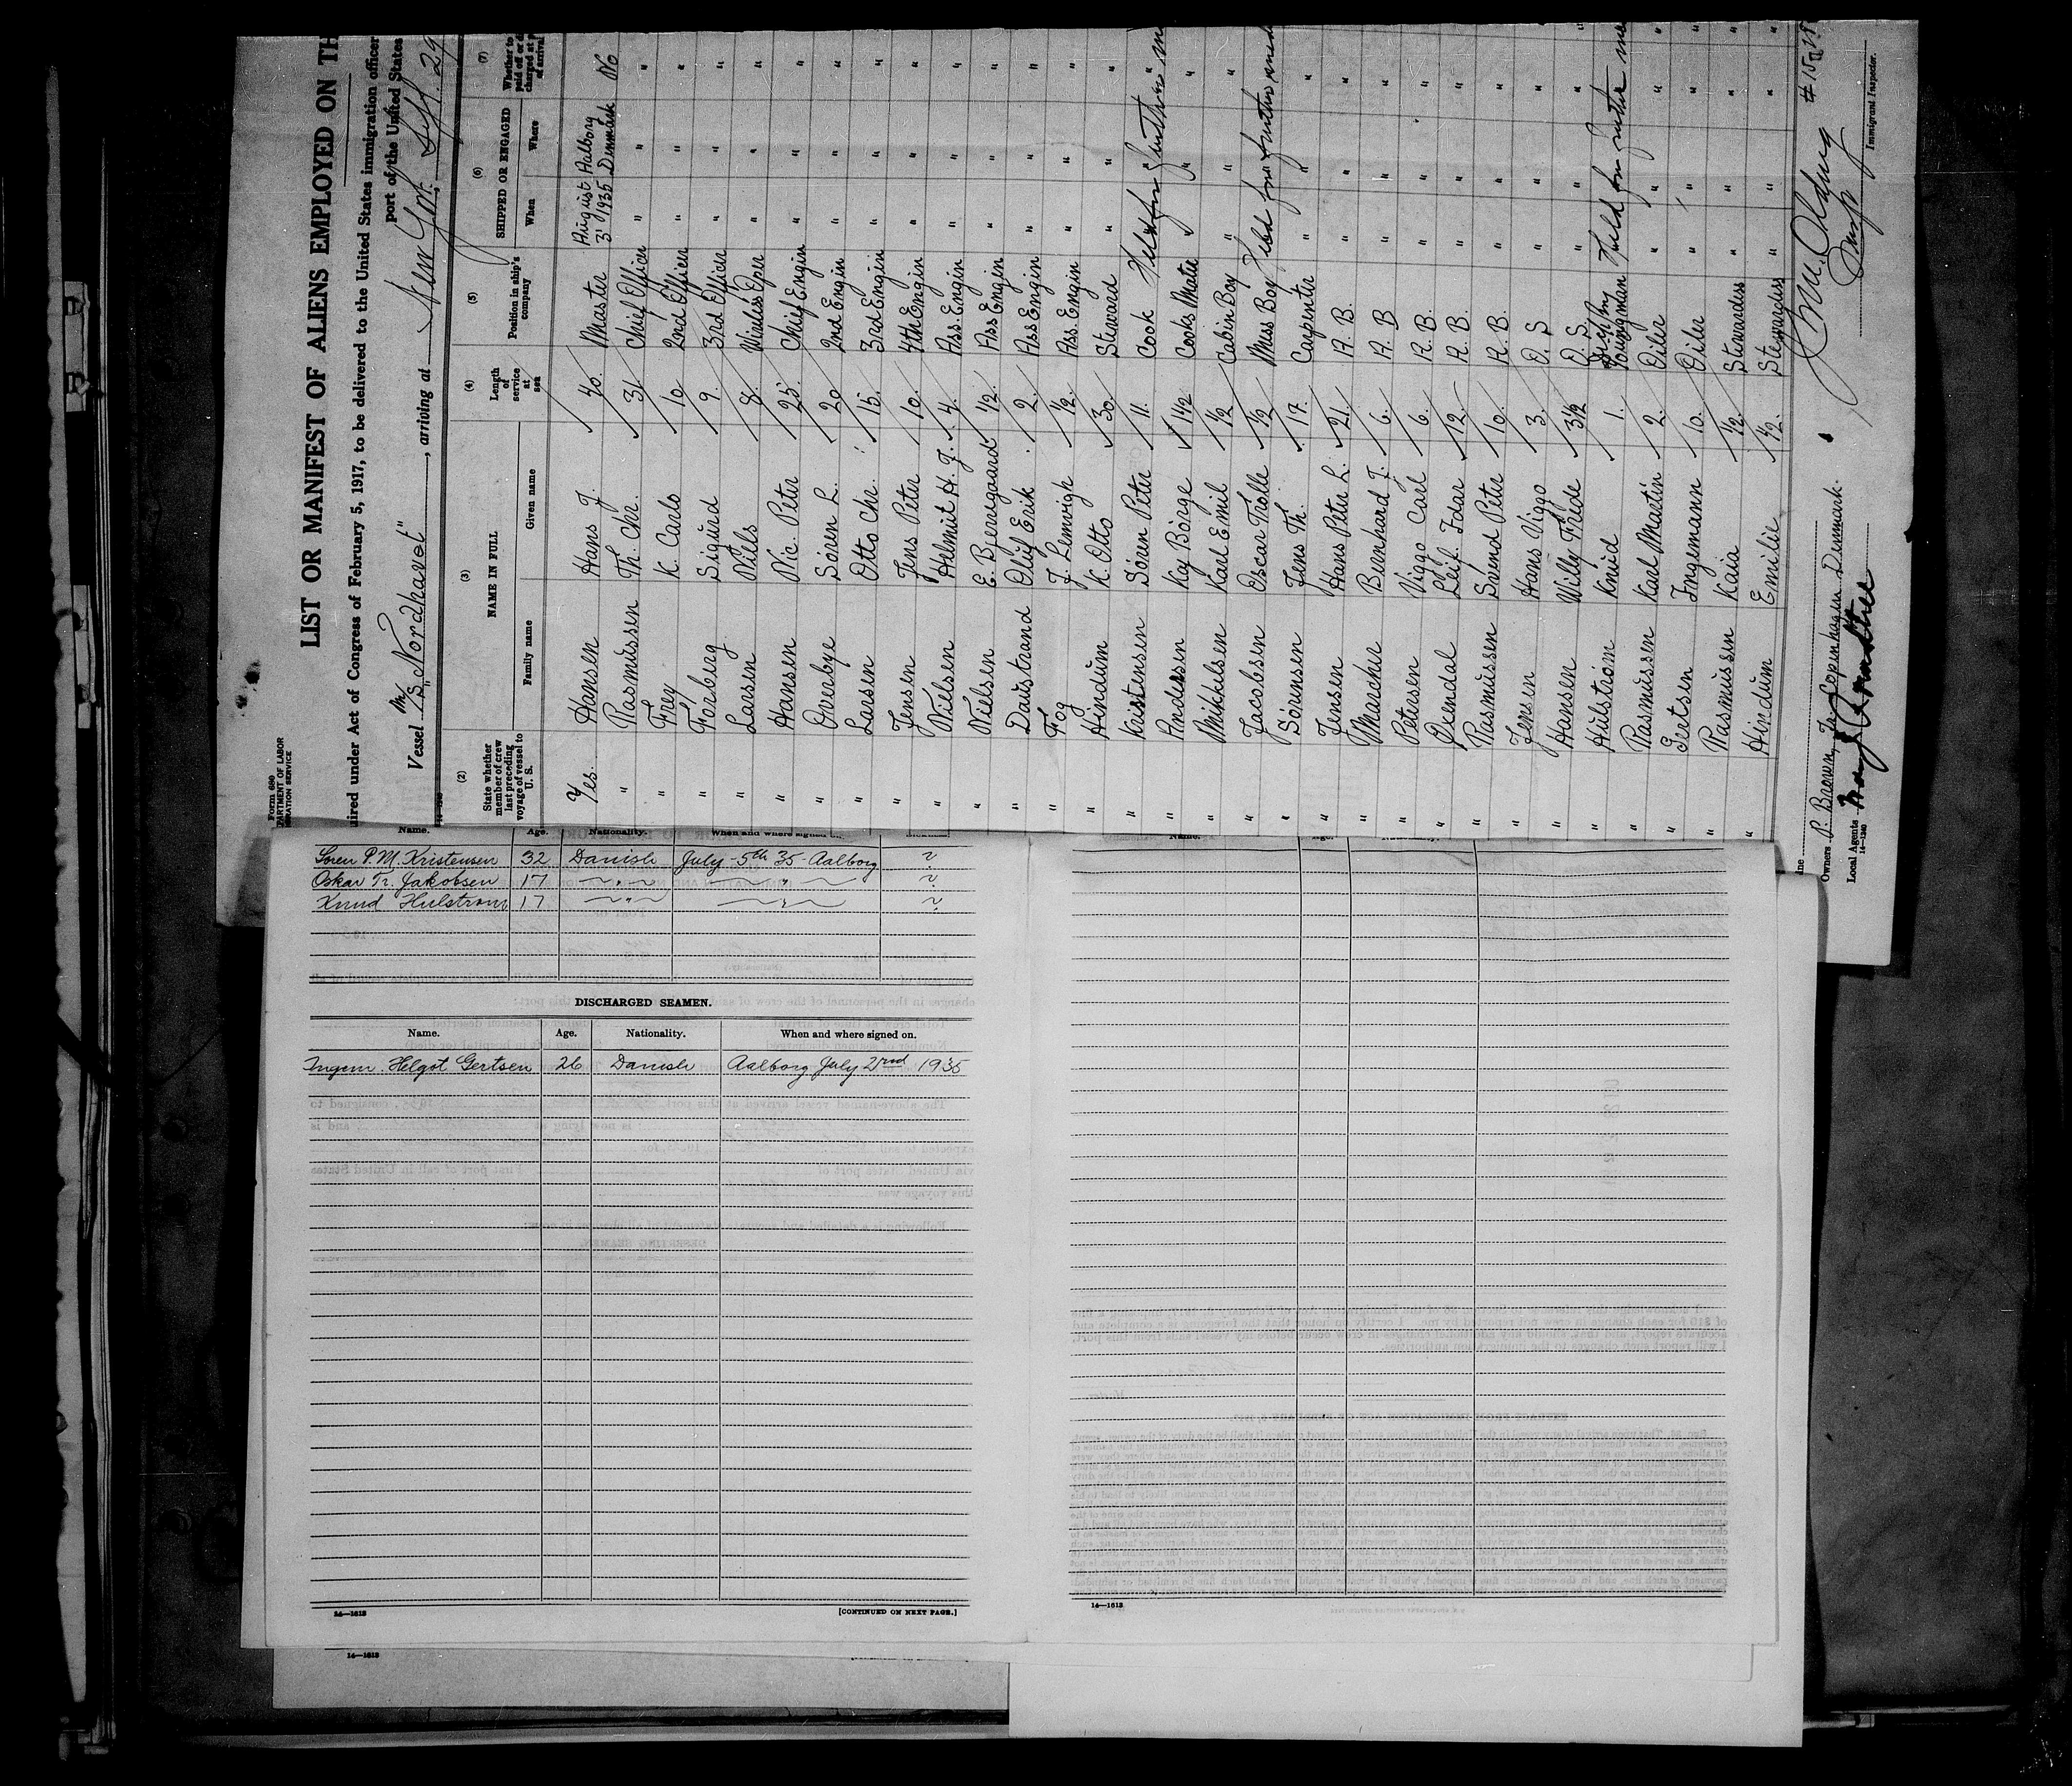 Form 680
LIST OR MANIFEST OF ALIENS EMPLOYED ON TH
uired under Act of Congress of February 5, 1917, to be delivered to the United States immigration officer
port of the United States
Vessel M/S "Nordhavet", arriving at New York Sept. 29
(2) (3) (4) (5) (6) (7)
State whether member of crew last preceding voyage of vessel to U. S. NAME IN FULL Length of service at sea Position in ship's company SHIPPED OR ENGAGED
Family name Given name When Where
Yes. Hansen Hans J. 40. Master August 3' 1935 Aalborg Denmark No
" Rasmussen Th. Chr. 31 Chief Officer " " "
" Frey K. Carlo 10 2nd Officer " " "
" Forberg Sigurd 9. 3rd Officer " " "
" Larsen Niels 8. " " "
" Hansen Nic. Peter 25. Chief Engin " " "
" Overbye Sören L. 20 2nd Engin " " "
" Larsen Otto Chr. 15. 3rd Engin " " "
" Jensen Jens Peter 10. 4th Engin " " "
" Nielsen Helmit H. J. 4. Ass. Engin " " "
" Nielsen E. Bjerregaard 1/2. Ass Engin " " "
" Daustrand Oluf Erik 2. Ass Engin " " "
" Fog J. Lemvigh 1/2. Ass. Engin " " "
" Hindum K. Otto 30. Steward " " "
" Kristensen Sören Peter 11. Cook Held for further
" Andersen Kaj Börge 1 1/2 Cooks Mate " " "
" Mikkelsen Karl Emil 1/2 Cabin Boy " " "
" Jacobsen Oscar Trolle 1/2 Mess Boy Held for further
" Sörensen Jens Th. 17. Carpenter " " "
" Jensen Hans Peter L. 21. A. B. " " "
" Marcher Bernhard J. 6. A. B " " "
" Petersen Viggo Carl 6. A. B. " " "
" Oxendal Leif. Idar 12. A. B. " " "
" Rasmussen Svend Peter 10. A. B. " " "
" Jensen Hans Viggo 3. O. S " " "
" Hansen Willy Frede 3 1/2 O. S. " " "
" Hulström Knud 1. Youngman Held for further
" Rasmussen Karl Martin 2. Oiler " " "
" Gertsen Ingemann 10. Oiler " " "
" Rasmussen Kaia 1/2. Stewardess " " "
" Hindum Emilie 1/2. Stewardess " " "
Owners P. Brown, Jr. Copenhagen Denmark.
Local Agents
14—1240
Immigrant Inspector.
Name. Age. Nationality. When and where signed on.
Sören P. M. Kristensen 32 Danish July - 5th 35 - Aalborg ?
Oskar Tr. Jakobsen 17 " " ?
Knud Hulstrom 17 " " ?
DISCHARGED SEAMEN.
Name. Age. Nationality. When and where signed on.
Ingem. Helgot Gertsen 26 Danish Aalborg July 2nd 1935
14—1613 [CONTINUED ON NEXT PAGE.]
14—1613
14—1613